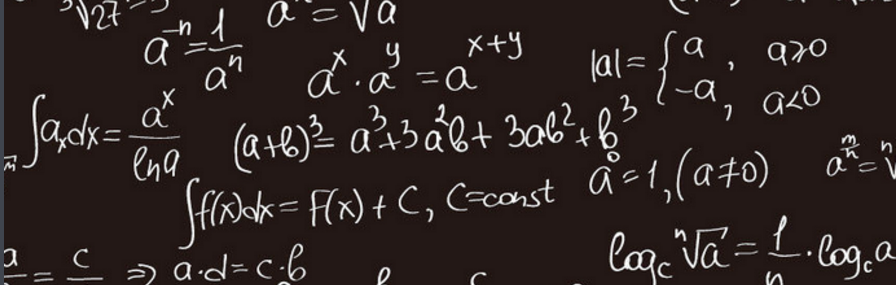 ³√27 = 3
a = √a
a⁻ⁿ = 1/aⁿ
aˣ · aʸ = aˣ⁺ʸ
|a| = { a, a≥0
-a, a<0
∫aₓdx = aˣ/lna
(a+b)³ = a³+3a²b+3ab²+b³
a⁰=1, (a≠0)
∫f(x)dx = F(x) + C, C=const
a/ = c/ ⇒ a·d=c·b
log_c ⁿ√a = 1/n · log_c a